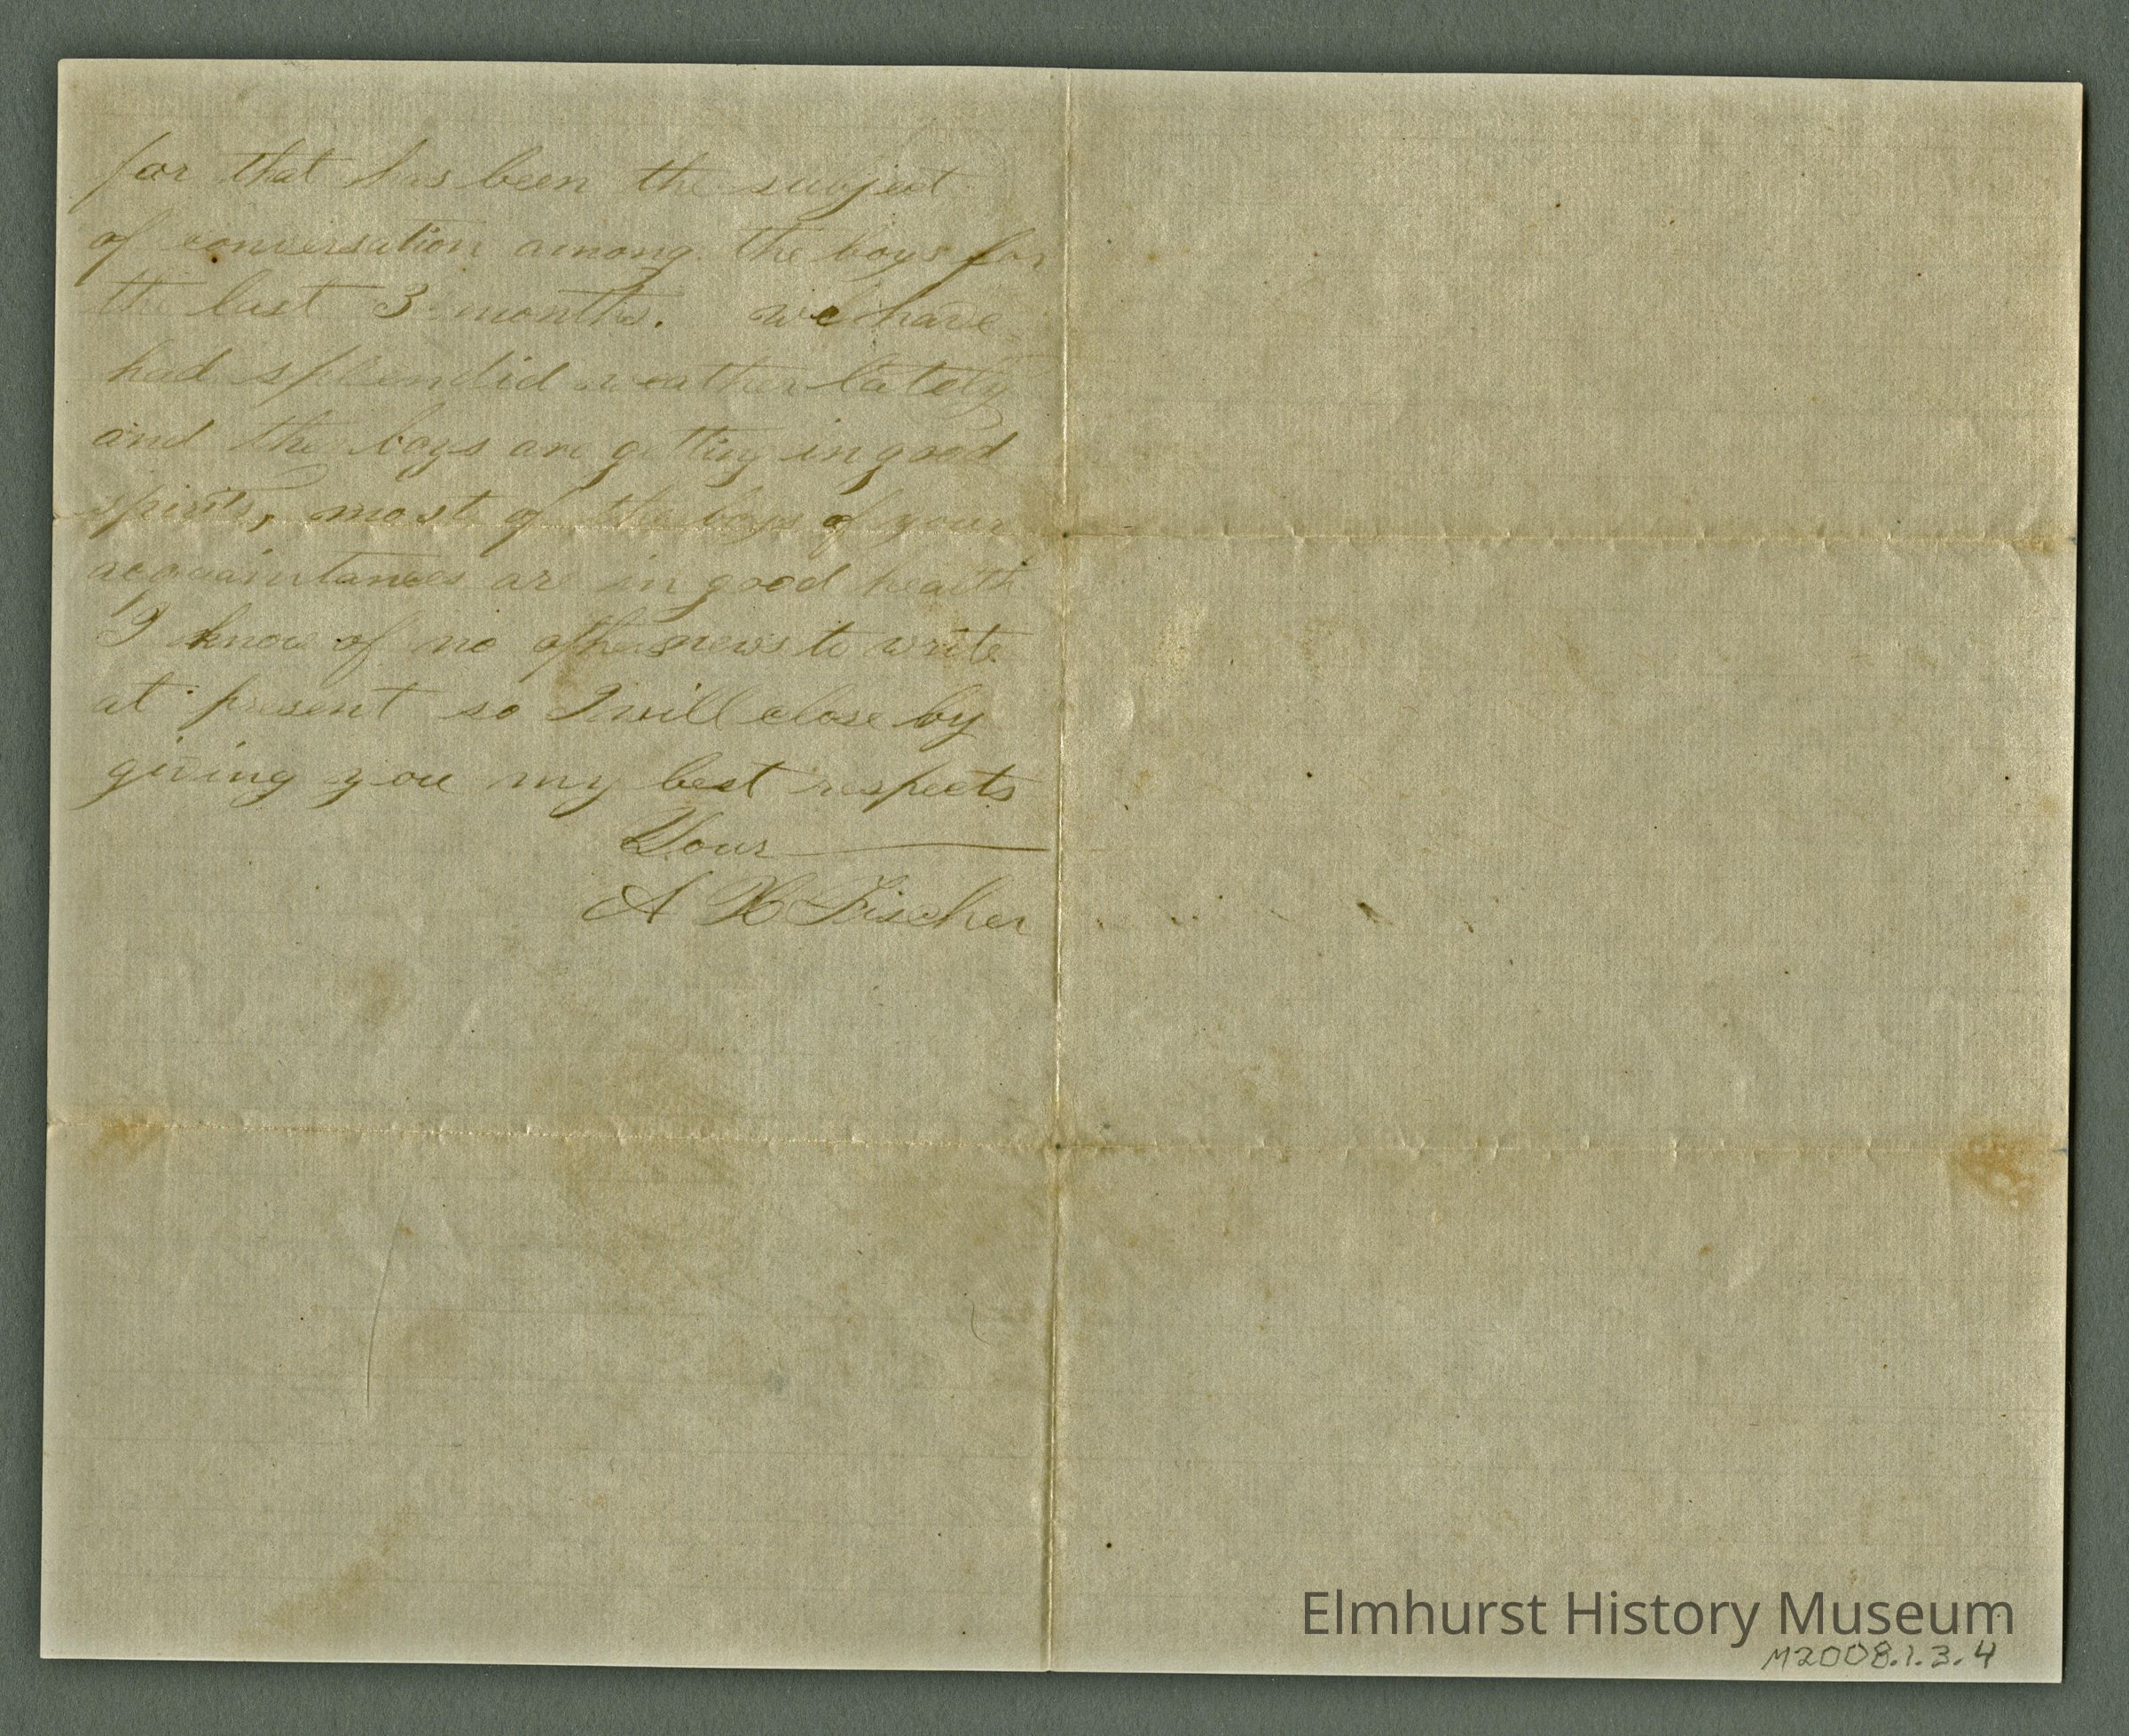 for that has been the subject
of conversation among the boys for
the last 3 months. we have
had splendid weather lately
and the boys are getting in good
spirits, most of the boys of your
acquaintances are in good health
I know of no other news to write
at present so I will close by
giving you my best respects
Your
A H Fischer
Elmhurst History Museum
M2008.1.3.4